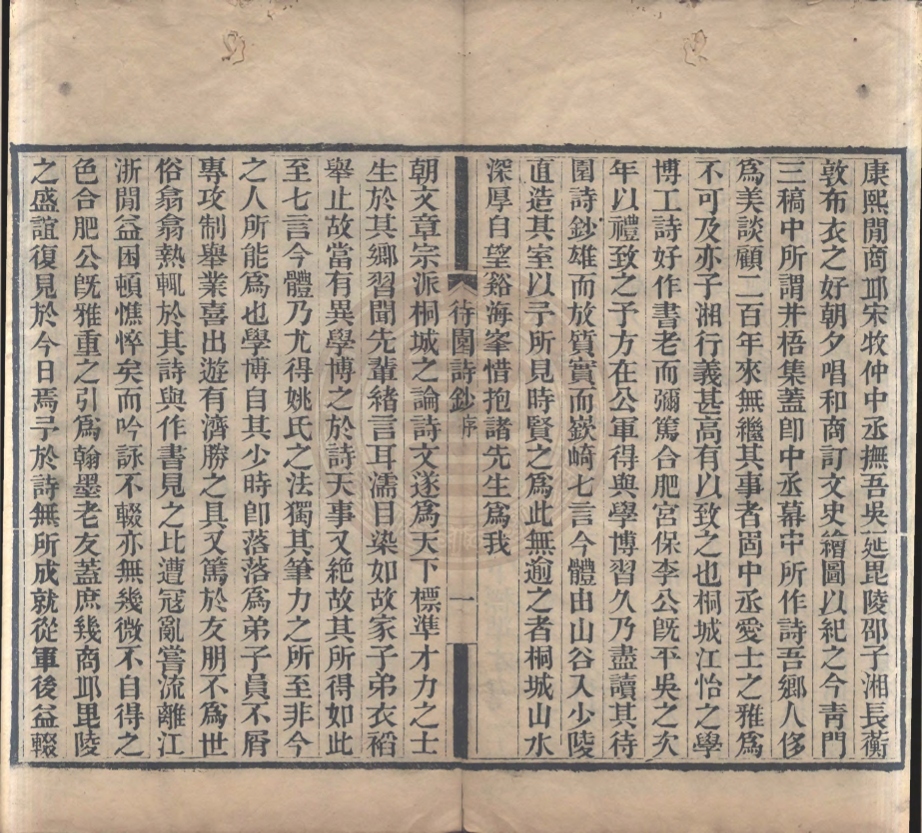 康熙閒商邱宋牧仲中丞撫吾吳延毘陵邵子湘長蘅
敦布衣之好朝夕唱和商訂文史繪圖以紀之今青門
三稿中所謂井梧集蓋卽中丞幕中所作詩吾鄉人侈
爲美談顧二百年來無繼其事者固中丞愛士之雅爲
不可及亦子湘行義甚高有以致之也桐城江怡之學
博工詩好作書老而彌篤合肥宮保李公旣平吳之次
年以禮致之予方在公軍得與學博習久乃盡讀其待
園詩鈔雄而放質實而嶔崎七言今體由山谷入少陵
直造其室以予所見時賢之爲此無逾之者桐城山水
深厚自望谿海峯惜抱諸先生爲我
待園詩鈔序
一
朝文章宗派桐城之論詩文遂爲天下標準才力之士
生於其鄉習聞先輩緒言耳濡目染如故家子弟衣裯
舉止故當有異學博之於詩天事又絶故其所得如此
至七言今體乃尤得姚氏之法獨其筆力之所至非今
之人所能爲也學博自其少時卽落落爲弟子員不屑
專攻制舉業喜出遊有濟勝之具又篤於友朋不爲世
俗翕翕熱輒於其詩與作書見之比遭寇亂嘗流離江
浙閒益困頓憔悴矣而吟詠不輟亦無幾微不自得之
色合肥公旣雅重之引爲翰墨老友蓋庶幾商邱毘陵
之盛誼復見於今日焉予於詩無所成就從軍後益輟